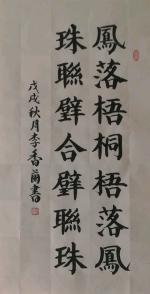 鳳落梧桐梧落鳳
珠聯璧合璧聯珠
戊戌秋月李香蘭書